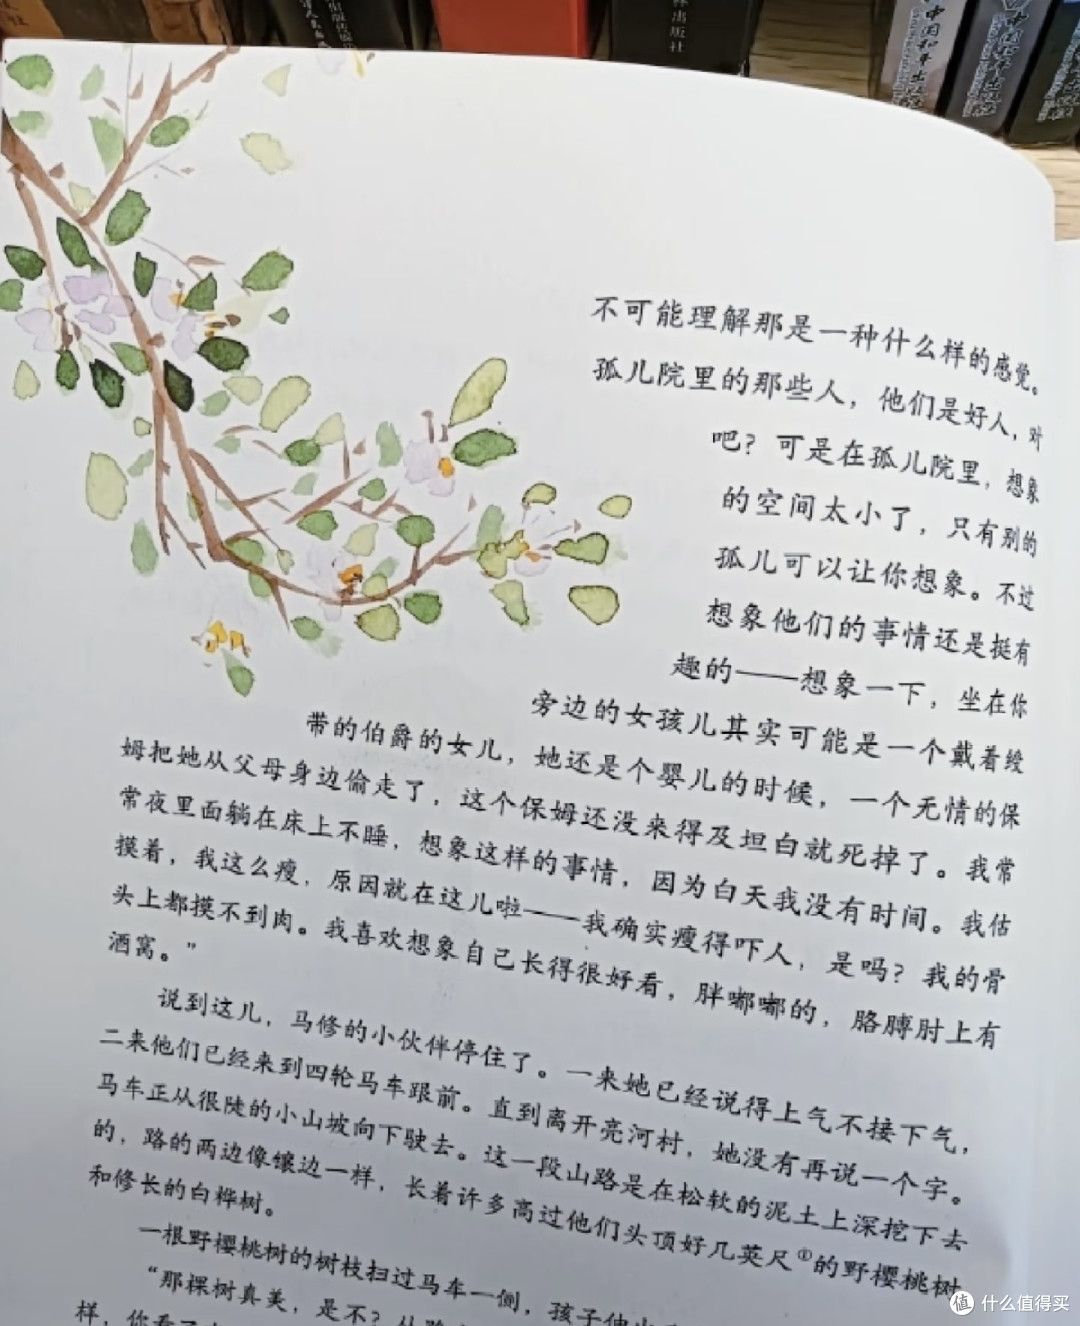 林出版社
中国和平出版社
中国和平出版社
不可能理解那是一种什么样的感觉。
孤儿院里的那些人，他们是好人，对
吧？可是在孤儿院里，想象
的空间太小了，只有别的
孤儿可以让你想象。不过
想象他们的事情还是挺有
趣的——想象一下，坐在你
旁边的女孩儿其实可能是一个戴着绶
带的伯爵的女儿，她还是个婴儿的时候，一个无情的保
姆把她从父母身边偷走了，这个保姆还没来得及坦白就死掉了。我常
常夜里面躺在床上不睡，想象这样的事情，因为白天我没有时间。我估
摸着，我这么瘦，原因就在这儿啦——我确实瘦得吓人，是吗？我的骨
头上都摸不到肉。我喜欢想象自己长得很好看，胖嘟嘟的，胳膊肘上有
酒窝。”
说到这儿，马修的小伙伴停住了。一来她已经说得上气不接下气，
二来他们已经来到四轮马车跟前。直到离开亮河村，她没有再说一个字。
马车正从很陡的小山坡向下驶去。这一段山路是在松软的泥土上深挖下去
的，路的两边像镶边一样，长着许多高过他们头顶好几英尺①的野樱桃树
和修长的白桦树。
一根野樱桃树的树枝扫过马车一侧，孩子伸出
“那棵树真美，是不？从路
样，你看了
值 什么值得买